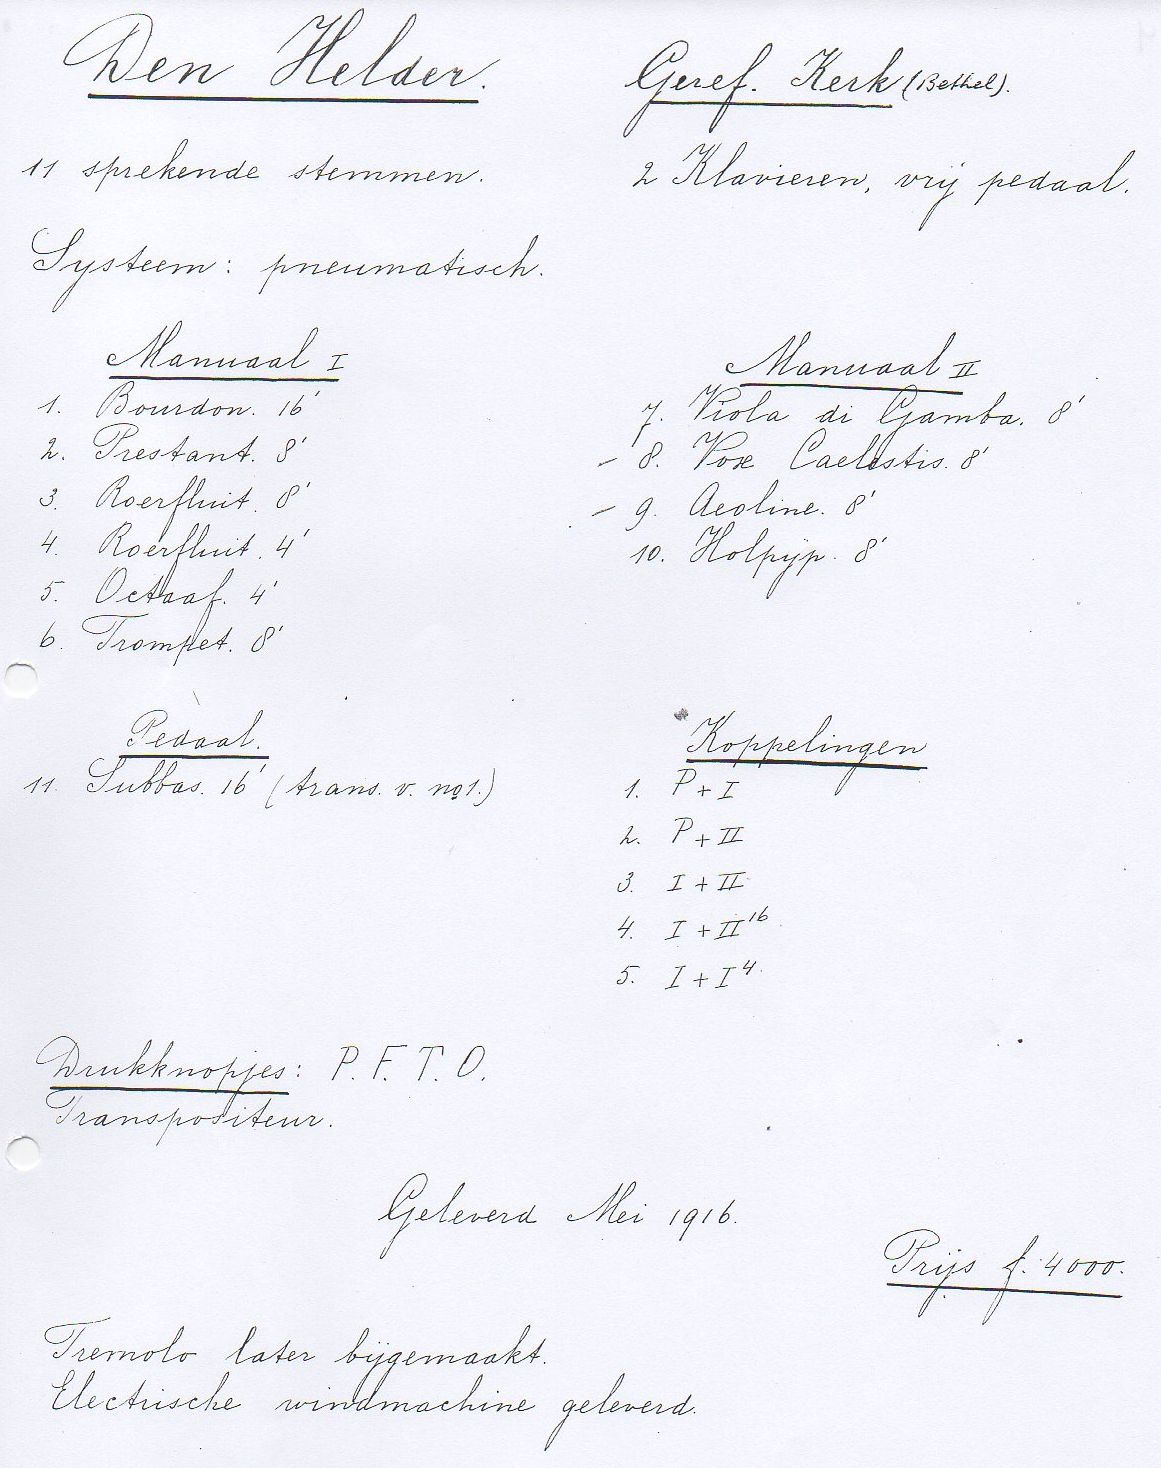 Den Helder.
Geref. Kerk (Bethel).
11 sprekende stemmen.
2 Klavieren, vrij pedaal.
Systeem: pneumatisch.
Manuaal I
1. Bourdon. 16'
2. Prestant. 8'
3. Roerfluit. 8'
4. Roerfluit. 4'
5. Octaaf. 4'
6. Trompet. 8'
Manuaal II
7. Viola di Gamba. 8'
- 8. Vox Caelestis. 8'
- 9. Aeoline. 8'
10. Holpijp. 8'
Pedaal.
11. Subbas. 16' (trans. v. no1.)
Koppelingen
1. P + I
2. P + II
3. I + II
4. I + II 16
5. I + I 4.
Drukknopjes: P. F. T. O.
Transpositeur.
Geleverd Mei 1916.
Prijs f. 4000.
Tremolo later bijgemaakt.
Electrische windmachine geleverd.